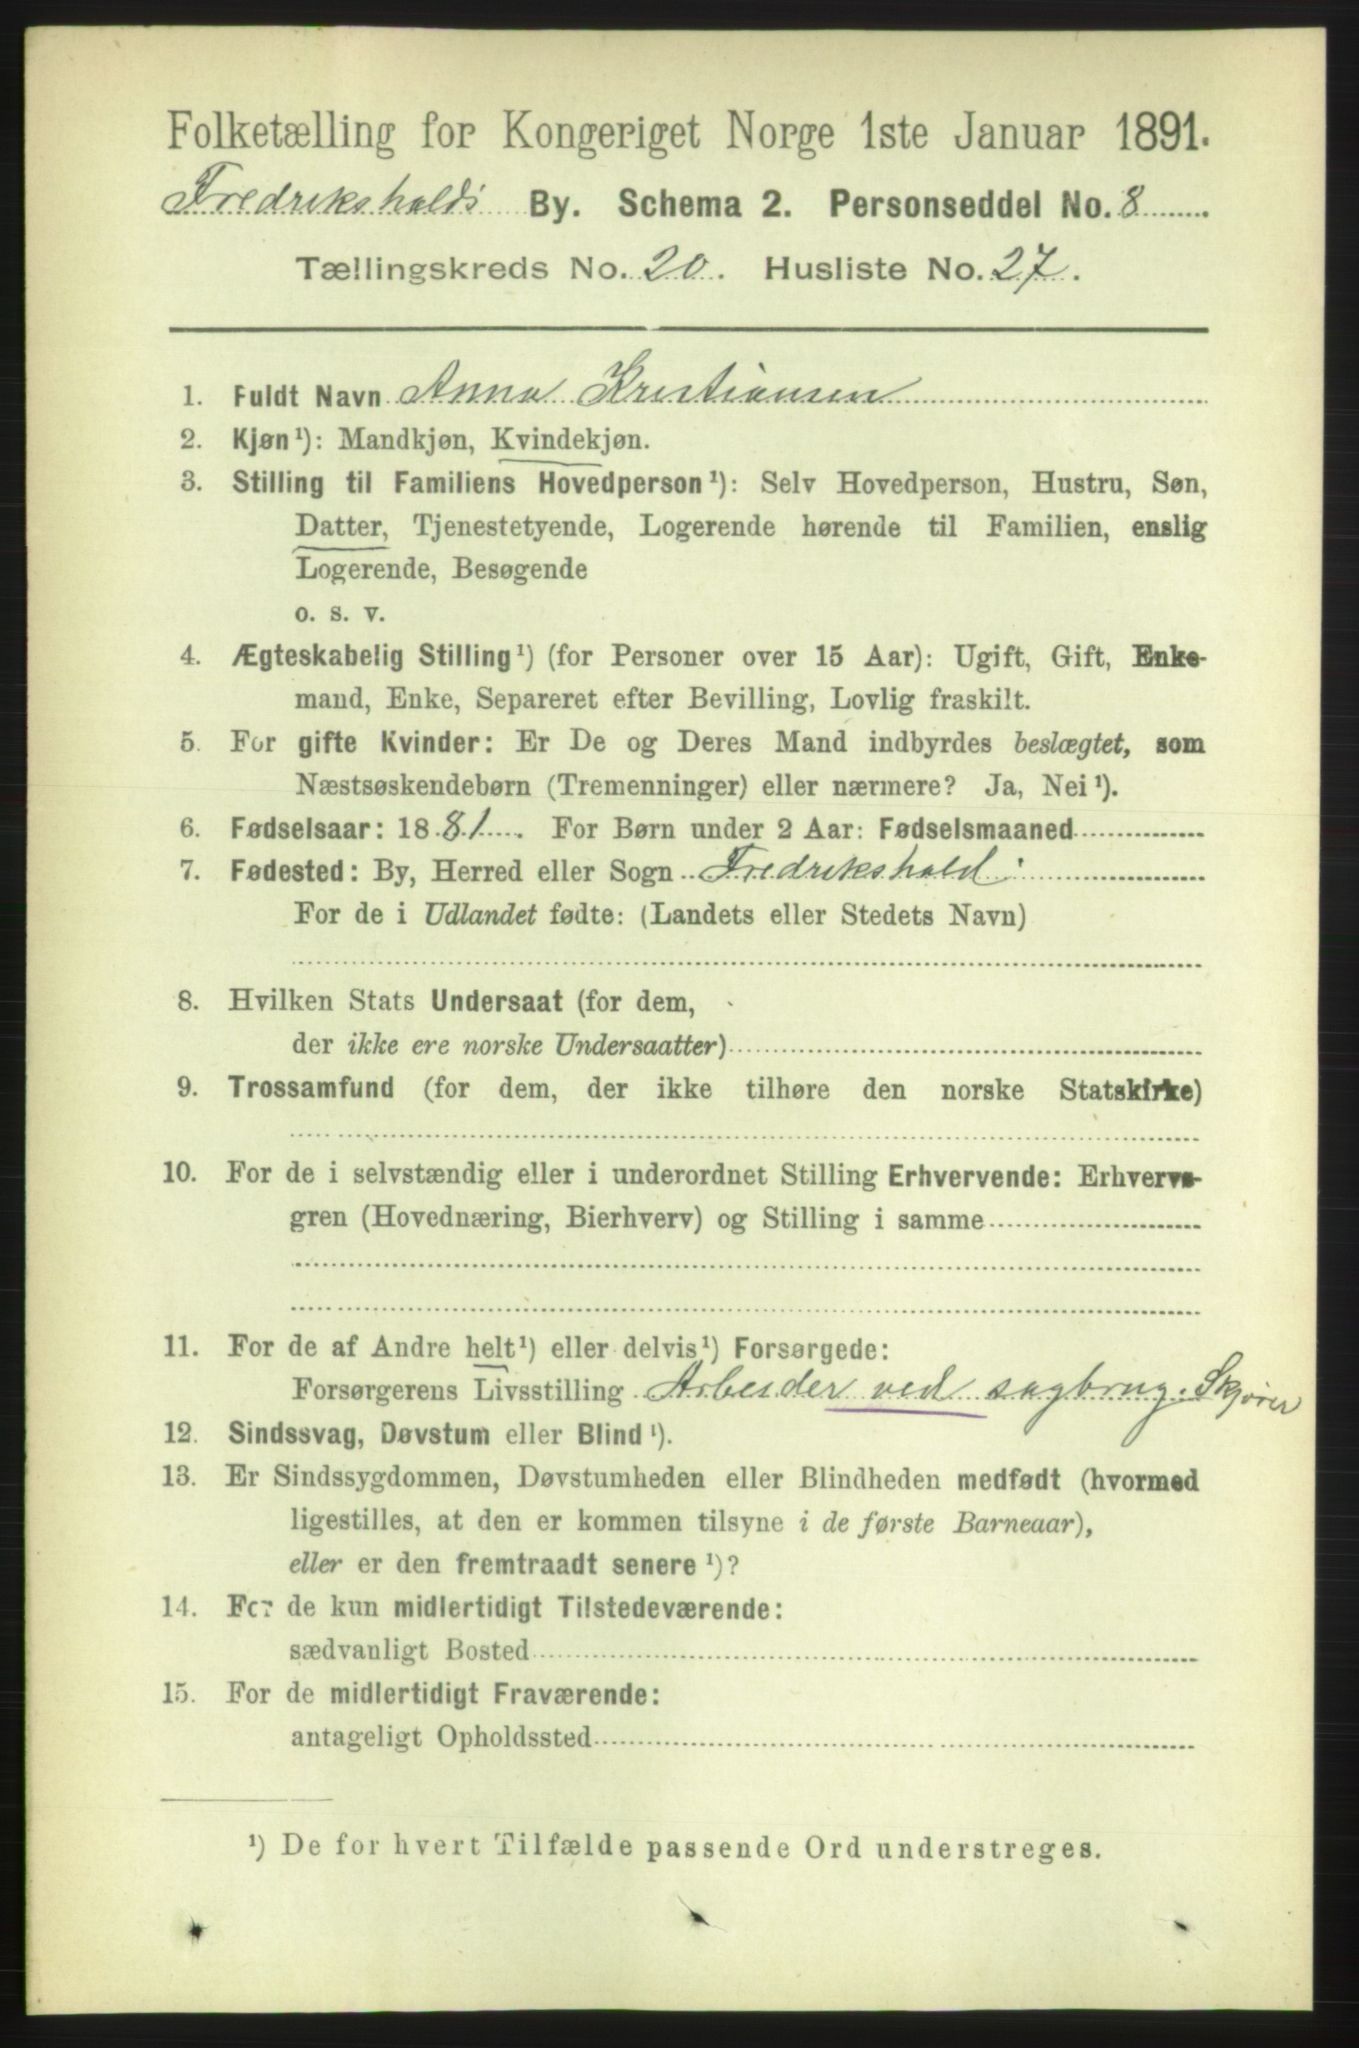 Folketælling for Kongeriget Norge 1ste Januar 1891.
Fredrikshalds By. Schema 2. Personseddel No. 8
Tællingskreds No. 20. Husliste No. 27.
1. Fuldt Navn Anna Kristiansen
2. Kjøn¹): Mandkjøn, Kvindekjøn.
3. Stilling til Familiens Hovedperson¹): Selv Hovedperson, Hustru, Søn,
Datter, Tjenestetyende, Logerende hørende til Familien, enslig
Logerende, Besøgende
o. s. v.
4. Ægteskabelig Stilling¹) (for Personer over 15 Aar): Ugift, Gift, Enke-
mand, Enke, Separeret efter Bevilling, Lovlig fraskilt.
5. For gifte Kvinder: Er De og Deres Mand indbyrdes beslægtet, som
Næstsøskendebørn (Tremenninger) eller nærmere? Ja, Nei¹).
6. Fødselsaar: 1881. For Børn under 2 Aar: Fødselsmaaned
7. Fødested: By, Herred eller Sogn Fredrikshald
For de i Udlandet fødte: (Landets eller Stedets Navn)
8. Hvilken Stats Undersaat (for dem,
der ikke ere norske Undersaatter)
9. Trossamfund (for dem, der ikke tilhøre den norske Statskirke)
10. For de i selvstændig eller i underordnet Stilling Erhvervende: Erhvervs-
gren (Hovednæring, Bierhverv) og Stilling i samme
11. For de af Andre helt¹) eller delvis¹) Forsørgede:
Forsørgerens Livsstilling Arbeider ved sagbrug. Skjører
12. Sindssvag, Døvstum eller Blind¹).
13. Er Sindssygdommen, Døvstumheden eller Blindheden medfødt (hvormed
ligestilles, at den er kommen tilsyne i de første Barneaar),
eller er den fremtraadt senere¹)?
14. For de kun midlertidigt Tilstedeværende:
sædvanligt Bosted
15. For de midlertidigt Fraværende:
antageligt Opholdssted
¹) De for hvert Tilfælde passende Ord understreges.